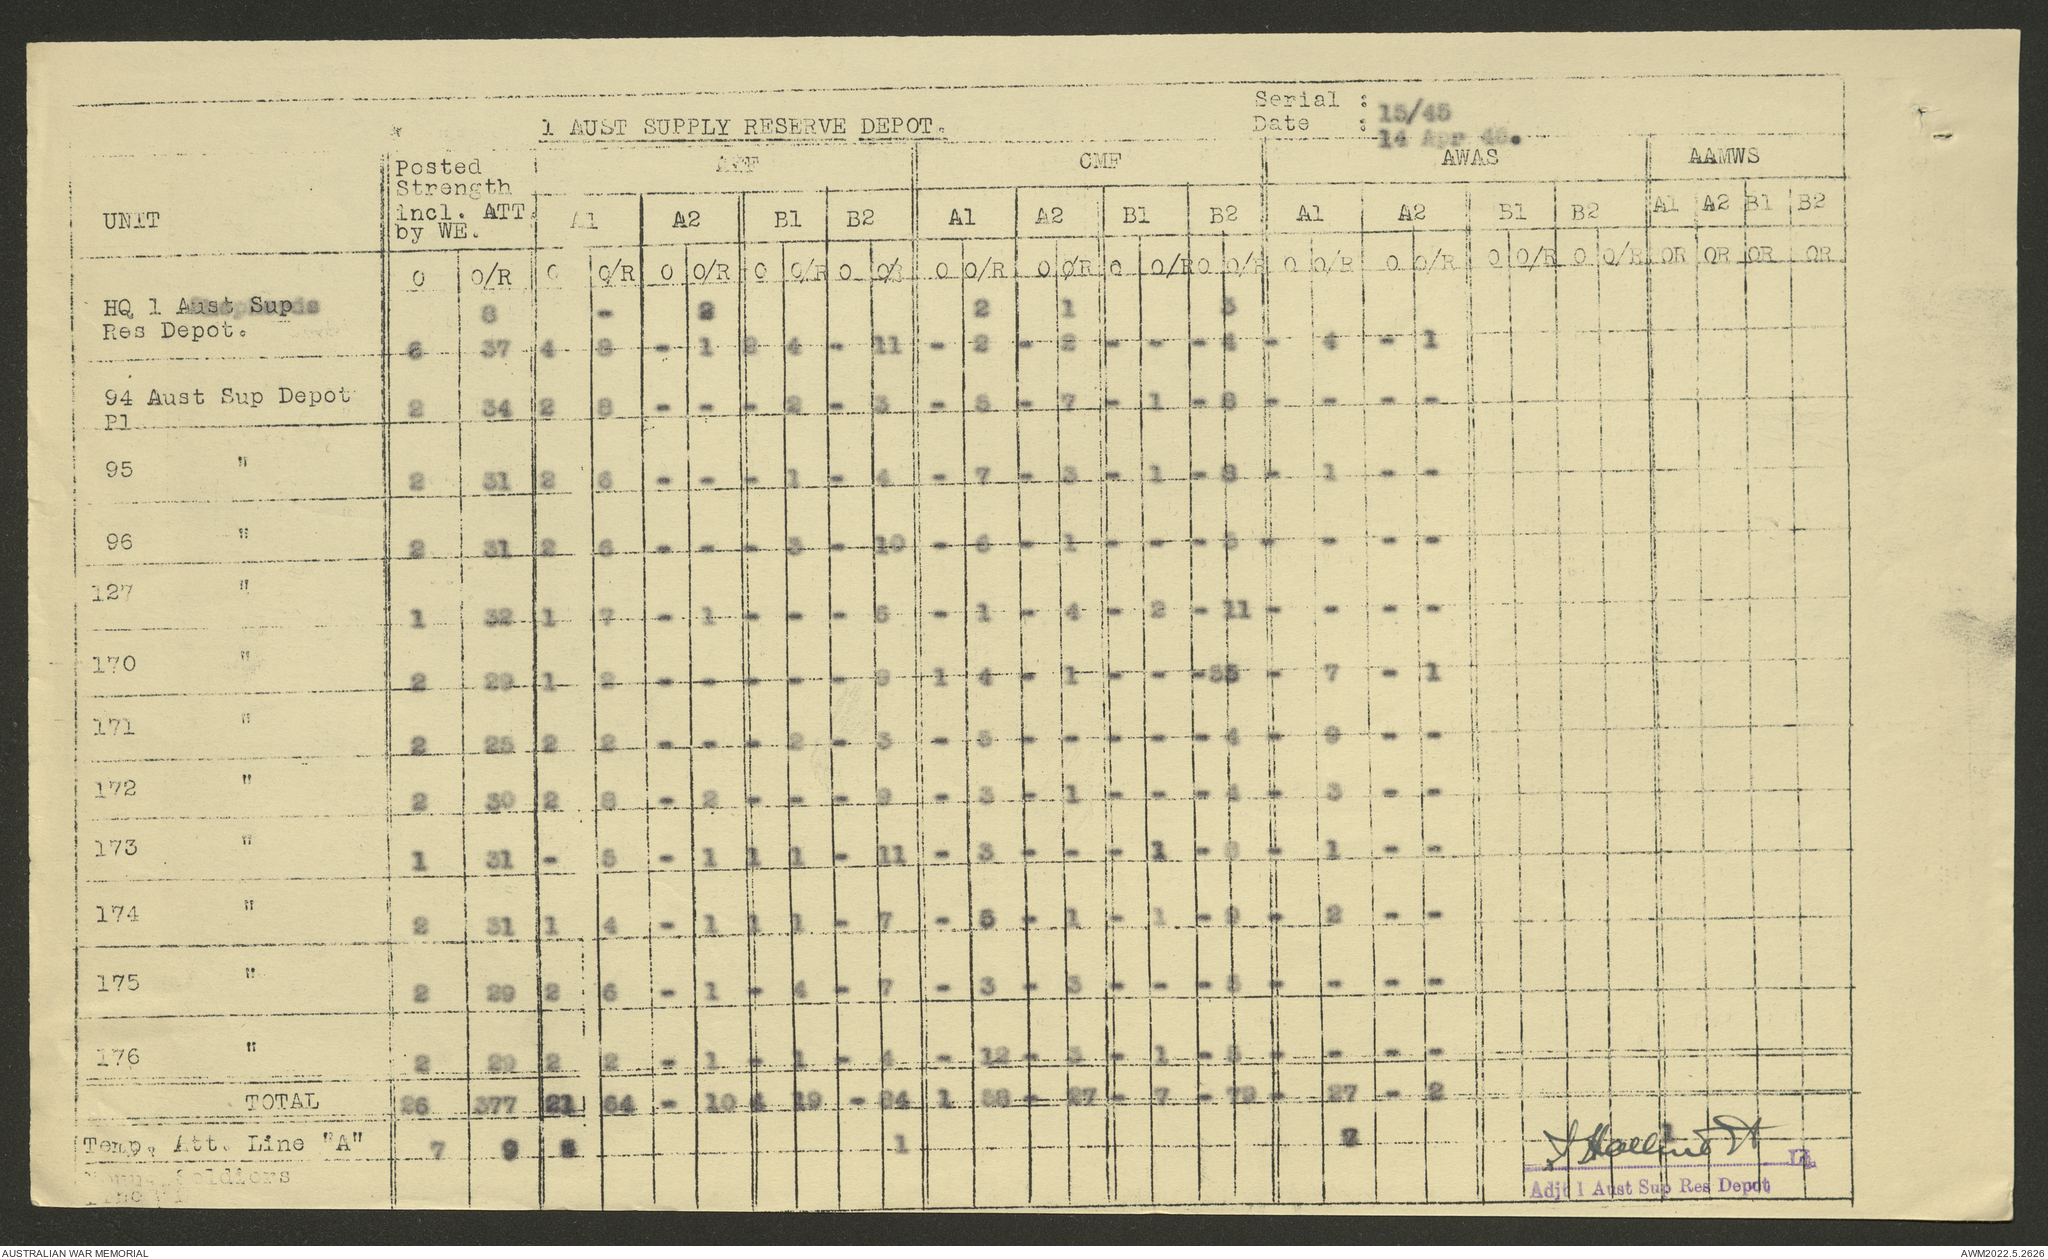 Serial : 15/45
1 AUST SUPPLY RESERVE DEPOT.
Date : 14 Apr 45.
UNIT Posted Strength incl. ATT. by WE. AIF CMF AWAS AAMWS
A1 A2 B1 B2 A1 A2 B1 B2 A1 A2 B1 B2 A1 A2 B1 B2
O O/R O O/R O O/R O O/R O O/R O O/R O O/R O O/R O O/R O O/R O O/R O O/R O O/R OR OR OR OR
HQ 1 Aust Sup 8 - 2 2 1 3
Res Depot. 6 37 4 8 - 1 2 4 - 11 - 2 - 2 - - - 4 - 4 - 1
94 Aust Sup Depot 2 34 2 8 - - - 2 - 3 - 5 - 7 - 1 - 8 - - - -
Pl
95 " 2 31 2 6 - - - 1 - 4 - 7 - 3 - 1 - 8 - 1 - -
96 " 2 31 2 6 - - - 3 - 10 - 6 - 1 - - - 5 - - - -
127 " 1 32 1 7 - 1 - - - 6 - 1 - 4 - 2 - 11 - - - -
170 " 2 29 1 2 - - - - - 9 1 4 - 1 - - - 7 - 1
171 " 2 25 2 2 - - - 2 - 3 - 5 - - - - - 4 - 9 - -
172 " 2 30 2 8 - 2 - - - 9 - 3 - 1 - - - 4 - 3 - -
173 " 1 31 - 5 - 1 1 1 - 11 - 3 - - - 1 - 8 - 1 - -
174 " 2 31 1 4 - 1 1 1 - 7 - 5 - 1 - 1 - 9 - 2 - -
175 " 2 29 2 6 - 1 - 4 - 7 - 3 - 3 - - - 5 - - - -
176 " 2 29 2 2 - 1 - 1 - 4 - 12 - 3 - 1 - 5 - - - -
TOTAL 26 377 21 64 - 10 4 19 - 84 1 58 - 27 - 7 - 79 - 27 - 2
Temp. Att. Line "A" 7 9 1
Soldiers
Lt
Adjt 1 Aust Sup Res Depot
AUSTRALIAN WAR MEMORIAL
AWM2022.5.2626